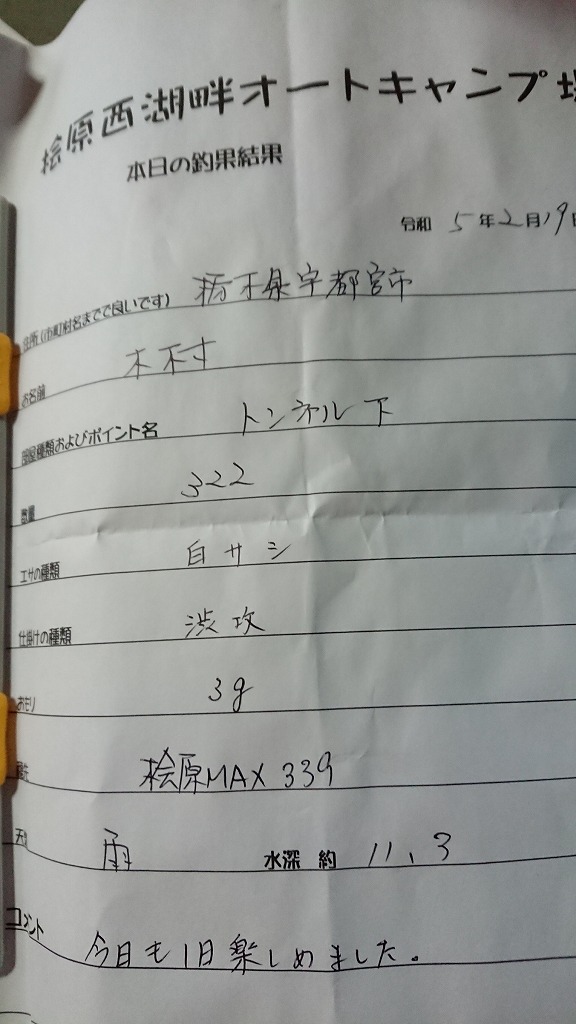 桧原西湖畔オートキャンプ場
本日の釣果結果
令和 5年2月19日
住所(市町村名までで良いです) 栃木県宇都宮市
お名前 木村
部屋種類およびポイント名 トンネル下
数量 322
エサの種類 白サシ
仕掛けの種類 渋攻
おもり 3g
桧原MAX 339
天気 雨 水深 約 11.3
コメント 今日も1日楽しめました。